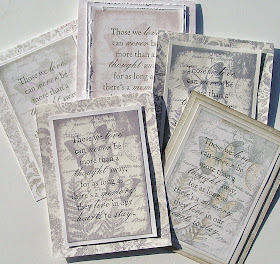 Those we love
can never be
more than a
thought away,
for as long a
there's a mem
Those we love
can never be
more than a
thought away,
for as long
Those we love
can never be
more than a
thought away
Those we love
can never be
more than a
thought away,
for as long
as there's a
memory
they live in our
hearts to stay.
Those we love
can never be
more than a
thought away,
for as long
as there's a
memory
they live in our
hearts to stay.